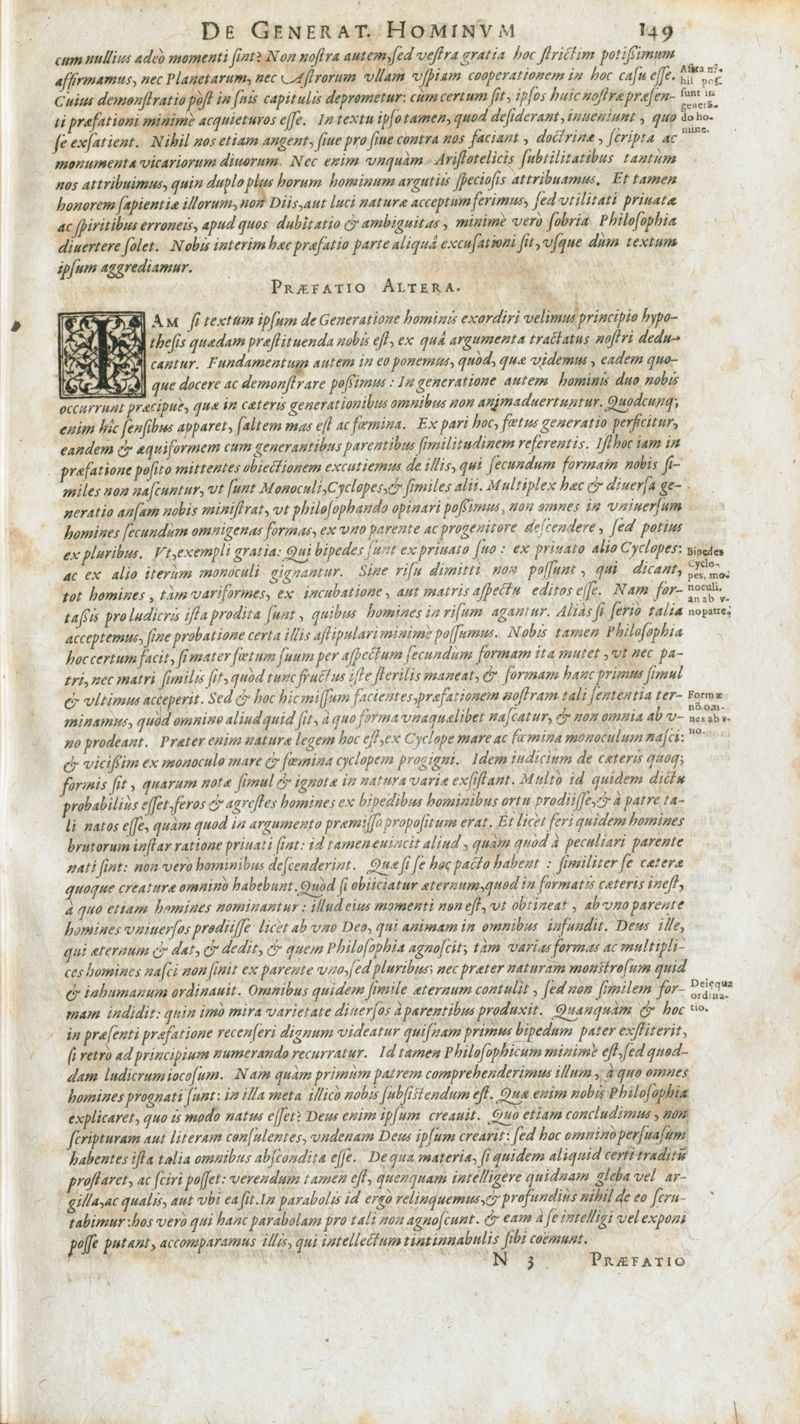 DE GENERAT. HOMINVM 149
cum nullius adeò momenti ſint? Non noſtra autem, ſed veſtra gratia hoc ſtrictim potißimum
affirmamus, nec Planetarum, nec Aſtrorum vllam vſpiam cooperationem in hoc caſu eſſe.
Cuius demonſtratio pòſt in ſuis capitulis depromet̃ur: cum certum ſit, ipſos huic noſtræ præſen-
ti præfationi minimè acquieturos eſſe. In textu ipſo tamen, quod deſiderant, inueniunt, quo
ſe exſatient. Nihil nos etiam angent, ſiue pro ſiue contra nos faciant, doctrinæ, ſcripta ac
monumenta vicariorum diuorum. Nec enim vnquàm Ariſtotelicis ſubtilitatibus tantùm
nos attribuimus, quin duplo plus horum hominum argutiis ſpecioſis attribuamus. Et tamen
honorem ſapientiæ illorum, non Diis, aut luci naturæ acceptum ferimus, ſed vtilitati priuatæ
ac ſpiritibus erroneis, apud quos dubitatio & ambiguitas, minimè verò ſobria Philoſophia
diuertere ſolet. Nobis interim hæc præfatio parte aliquâ excuſationi ſit, vſque dum textum
ipſum aggrediamur.
PRÆFATIO ALTERA.
IAM ſi textum ipſum de Generatione hominis exordiri velimus principio hypo-
theſis quædam præſtituenda nobis eſt, ex quâ argumenta tractatus noſtri dedu-
cantur. Fundamentum autem in eo ponemus, quòd, quæ videmus, eadem quo-
que docere ac demonſtrare poßimus: In generatione autem hominis duo nobis
occurrunt præcipuè, quæ in cæteris generationibus omnibus non animaduertuntur. Quodcunq;
enim hîc ſenſibus apparet, ſaltem mas eſt ac fœmina. Ex pari hoc, fœtus generatio perficitur,
eandem & æquiformem cum generantibus parentibus ſimilitudinem referentis. Iſthoc iam in
præfatione poſito mittentes obiectionem excutiemus de illis, qui ſecundum formam nobis ſi-
miles non naſcuntur, vt ſunt Monoculi, Cyclopes, & ſimiles alii. Multiplex hæc & diuerſa ge-
neratio anſam nobis miniſtrat, vt philoſophando opinari poßimus, non omnes in vniuerſum
homines ſecundùm omnigenas formas, ex vno parente ac progenitore deſcendere, ſed potius
ex pluribus. Vt, exempli gratia: Qui bipedes ſunt ex priuato ſuo: ex priuato alio Cyclopes:
ac ex alio iterùm monoculi gignantur. Sine riſu dimitti non poſſunt, qui dicant,
tot homines, tàm variformes, ex incubatione, aut matris aſpectu editos eſſe. Nam for-
taßis pro ludicris iſta prodita ſunt, quibus homines in riſum agantur. Aliàs ſi ſerio talia
acceptemus, ſine probatione certa illis aſtipulari minimè poſſumus. Nobis tamen Philoſophia
hoc certum facit, ſi mater fœtum ſuum per aſpectum ſecundum formam ita mutet, vt nec pa-
tri, nec matri ſimilis ſit, quòd tunc fructus iſte ſterilis maneat, & formam hanc primus ſimul
& vltimus acceperit. Sed & hoc hic miſſum facientes, præfationem noſtram tali ſententia ter-
minamus, quòd omnino aliud quid ſit, à quo forma vnaquælibet naſcatur, & non omnia ab v-
no prodeant. Præter enim naturæ legem hoc eſt, ex Cyclope mare ac fœmina monoculum naſci:
& vicißim ex monoculo mare & fœmina cyclopem progigni. Idem iudicium de cæteris quoq;
formis ſit, quarum notæ ſimul & ignotæ in natura variæ exſiſtant. Multò id quidem dictu
probabiliùs eſſet, feros & agreſtes homines ex bipedibus hominibus ortu prodiiſſe, & à patre ta-
li natos eſſe, quàm quod in argumento præmiſſo propoſitum erat. Et licèt feri quidem homines
brutorum inſtar ratione priuati ſint: id tamen euincit aliud, quàm quod à peculiari parente
nati ſint: non verò hominibus deſcenderint. Quæ ſi ſe hoc pacto habent: ſimiliter ſe cæteræ
quoque creaturæ omninò habebunt. Quòd ſi obiiciatur æternum, quod in formatis cæteris ineſt,
à quo etiam homines nominantur: illud eius momenti non eſt, vt obtineat, ab vno parente
homines vniuerſos prodiiſſe licèt ab vno Deo, qui animam in omnibus infundit. Deus ille,
qui æternum & dat, & dedit, & quem Philoſophia agnoſcit, tàm varias formas ac multipli-
ces homines naſci non ſinit ex parente vno, ſed pluribus: nec præter naturam monſtroſum quid
& inhumanum ordinauit. Omnibus quidem ſimile æternum contulit, ſed non ſimilem for-
mam indidit: quin imò mira varietate diuerſos à parentibus produxit. Quanquàm & hoc
in præſenti præfatione recenſeri dignum videatur quiſnam primus bipedum pater exſtiterit,
ſi retrò ad principium numerando recurratur. Id tamen Philoſophicum minimè eſt, ſed quod-
dam ludicrum iocoſum. Nam quàm primùm patrem comprehenderimus illum, à quo omnes
homines prognati ſunt: in illa meta illicò nobis ſubſiſtendum eſt. Quæ enim nobis Philoſophia
explicaret, quo is modo natus eſſet? Deus enim ipſum creauit. Quo etiam concludimus, non
ſcripturam aut literam conſulentes, vndenam Deus ipſum creârit: ſed hoc omnino perſuaſum
habentes iſta talia omnibus abſcondita eſſe. De qua materia, ſi quidem aliquid certi traditũ
proſtaret, ac ſciri poſſet: verendum tamen eſt, quenquam intelligere quidnam gleba vel ar-
gilla, ac qualis, aut vbi ea ſit. In parabolis id ergo relinquemus, & profundiùs nihil de eo ſcru-
tabimur: hos vero qui hanc parabolam pro tali non agnoſcunt. & eam à ſe intelligi vel exponi
poſſe putant, accomparamus illis, qui intellectum tintinnabulis ſibi coëmunt.
N 3 PRÆFATIO
Aſtra ni-
hil poſ-
ſunt in
generã-
do ho-
mine.
Bipedes
Cyclo-
pes, mo-
noculi,
an ab v-
no patre.
Formæ
nõ om-
nes ab v-
no.
Dei æqua
ordina-
tio.